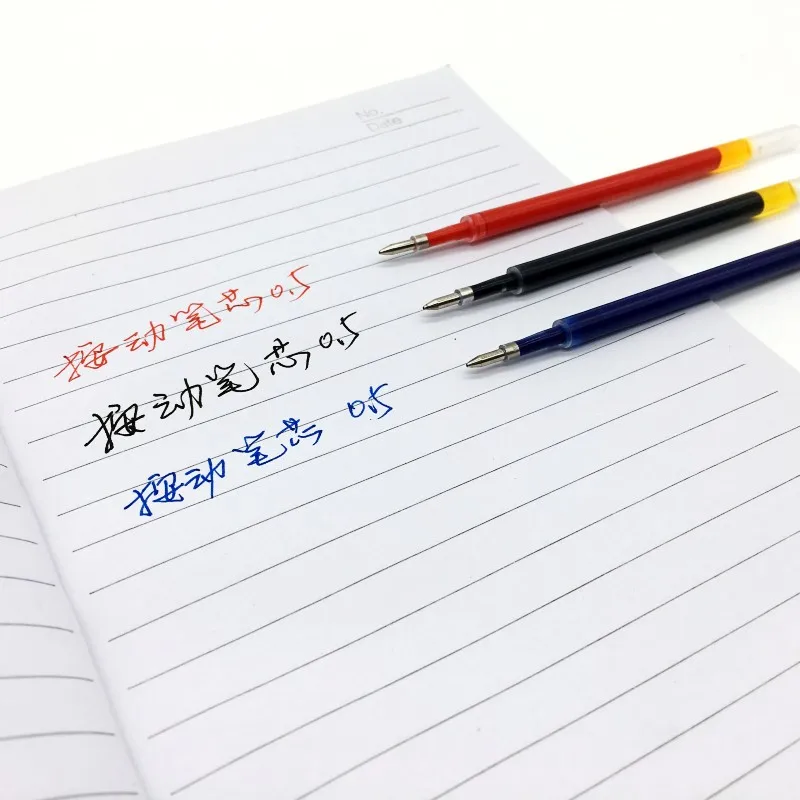 No.
Date
按动笔芯0.5
按动笔芯0.5
按动笔芯 0.5